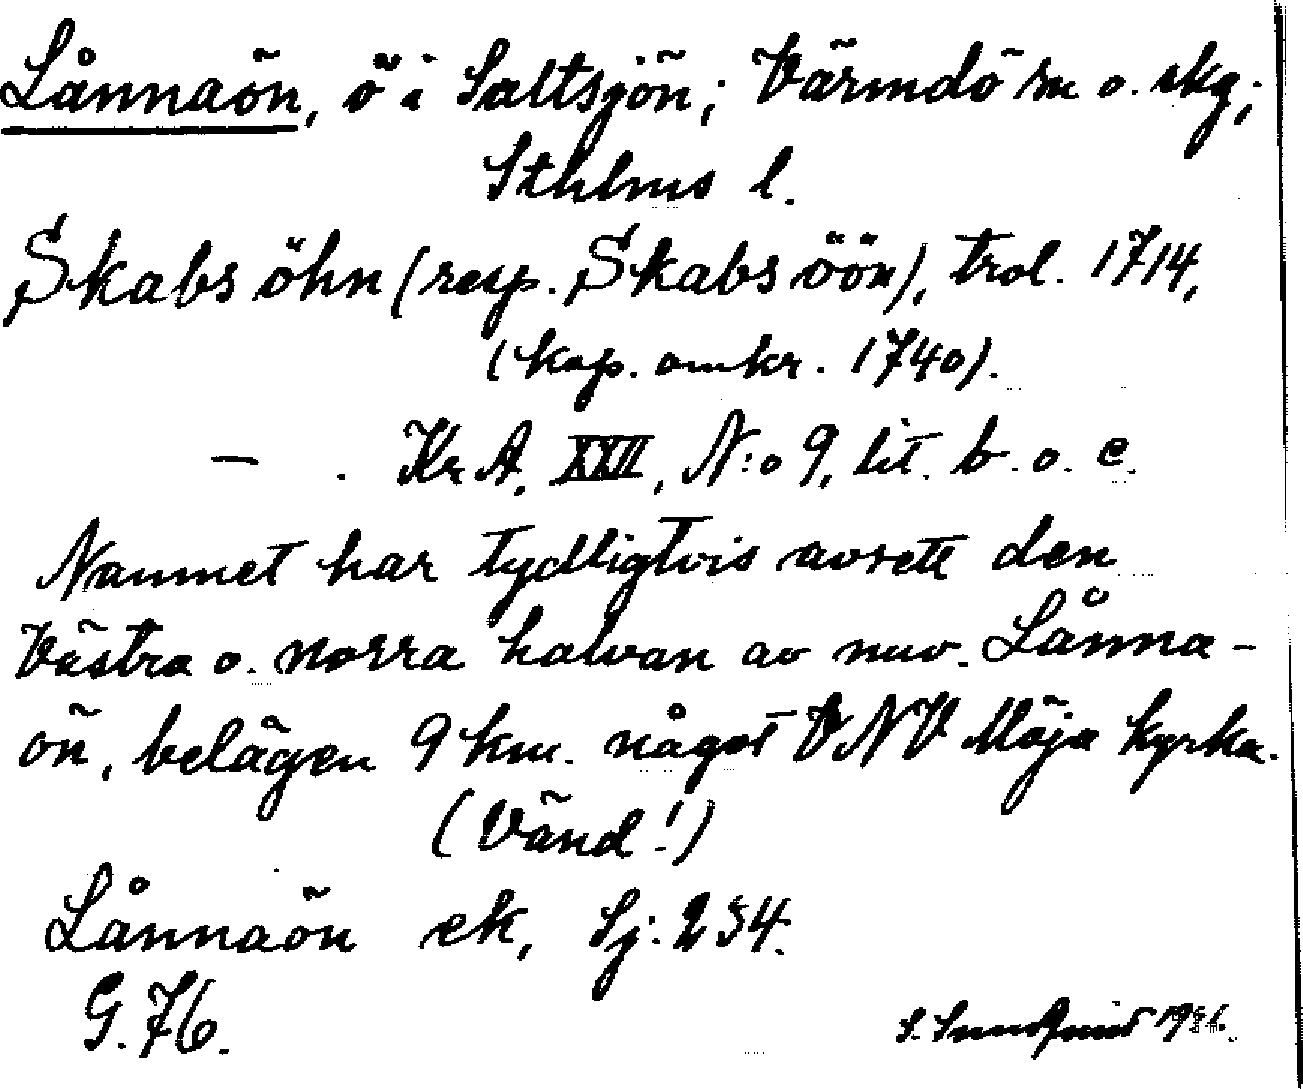 Lånnaön, ö i Saltsjön; Värmdö sn o. skg;
Sthlms l.
Skabs öhn (resp. Skabs öön), trol. 1714,
(kop. omkr. 1740).
— . KrA, XXII, N:o 9, lit. b. o. c.
Namnet har tydligtvis avsett den
Västra o. norra halvan av nuv. Lånna-
ön, belägen 9 km. något VNV Möja kyrka.
(Vänd!)
Lånnaön ek, Sj. 234.
G. 76.
S. Sundquist